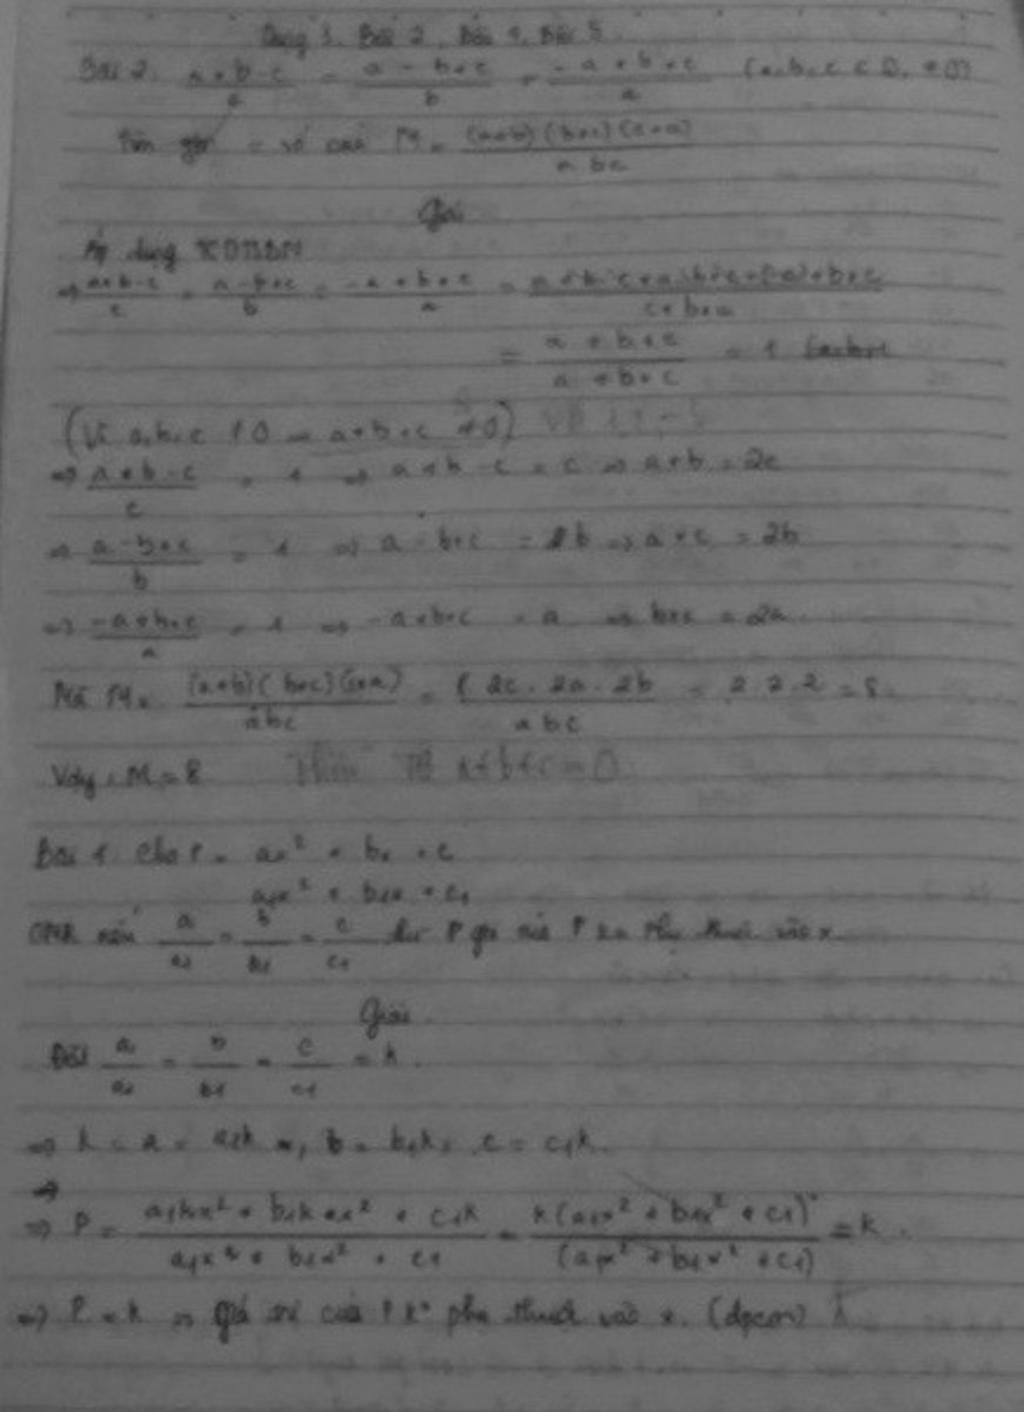 Dạng 1. Bài 2, Bài 4, Bài 5.
Bài 2. (a+b-c)/c = (a-b+c)/b = (-a+b+c)/a (a, b, c ≠ 0)
Tìm = số của M = (a+b)(b+c)(c+a)/abc
Giải
Áp dụng TCDTSBN
=> (a+b-c)/c = (a-b+c)/b = (-a+b+c)/a = (a+b-c+a-b+c+(-a)+b+c)/(c+b+a)
= (a+b+c)/(a+b+c) = 1
(Vì a, b, c ≠ 0 => a+b+c ≠ 0)
=> (a+b-c)/c = 1 => a+b-c = c => a+b = 2c
=> (a-b+c)/b = 1 => a-b+c = b => a+c = 2b
=> (-a+b+c)/a = 1 => -a+b+c = a => b+c = 2a.
Mà M = (a+b)(b+c)(c+a)/abc = (2c.2a.2b/abc = 2.2.2 = 8.
Vậy: M = 8 Thiếu TH a+b+c=0
Bài 4 Cho P = ax² + bx + c
a₁x² + b₁x + c₁
CMR nếu a/a₁ = b/b₁ = c/c₁ thì P giá P ko phụ thuộc vào x
Giải
Đặt a/a₁ = b/b₁ = c/c₁ = k.
=> k = a = a₁k, b = b₁k, c = c₁k.
=>
=> P = (a₁kx² + b₁kx² + c₁k)/(a₁x² + b₁x² + c₁) = k(a₁x² + b₁x² + c₁)/(a₁x² + b₁x² + c₁) = k.
=> P = k => giá trị của P k° phụ thuộc vào x. (đpcm)